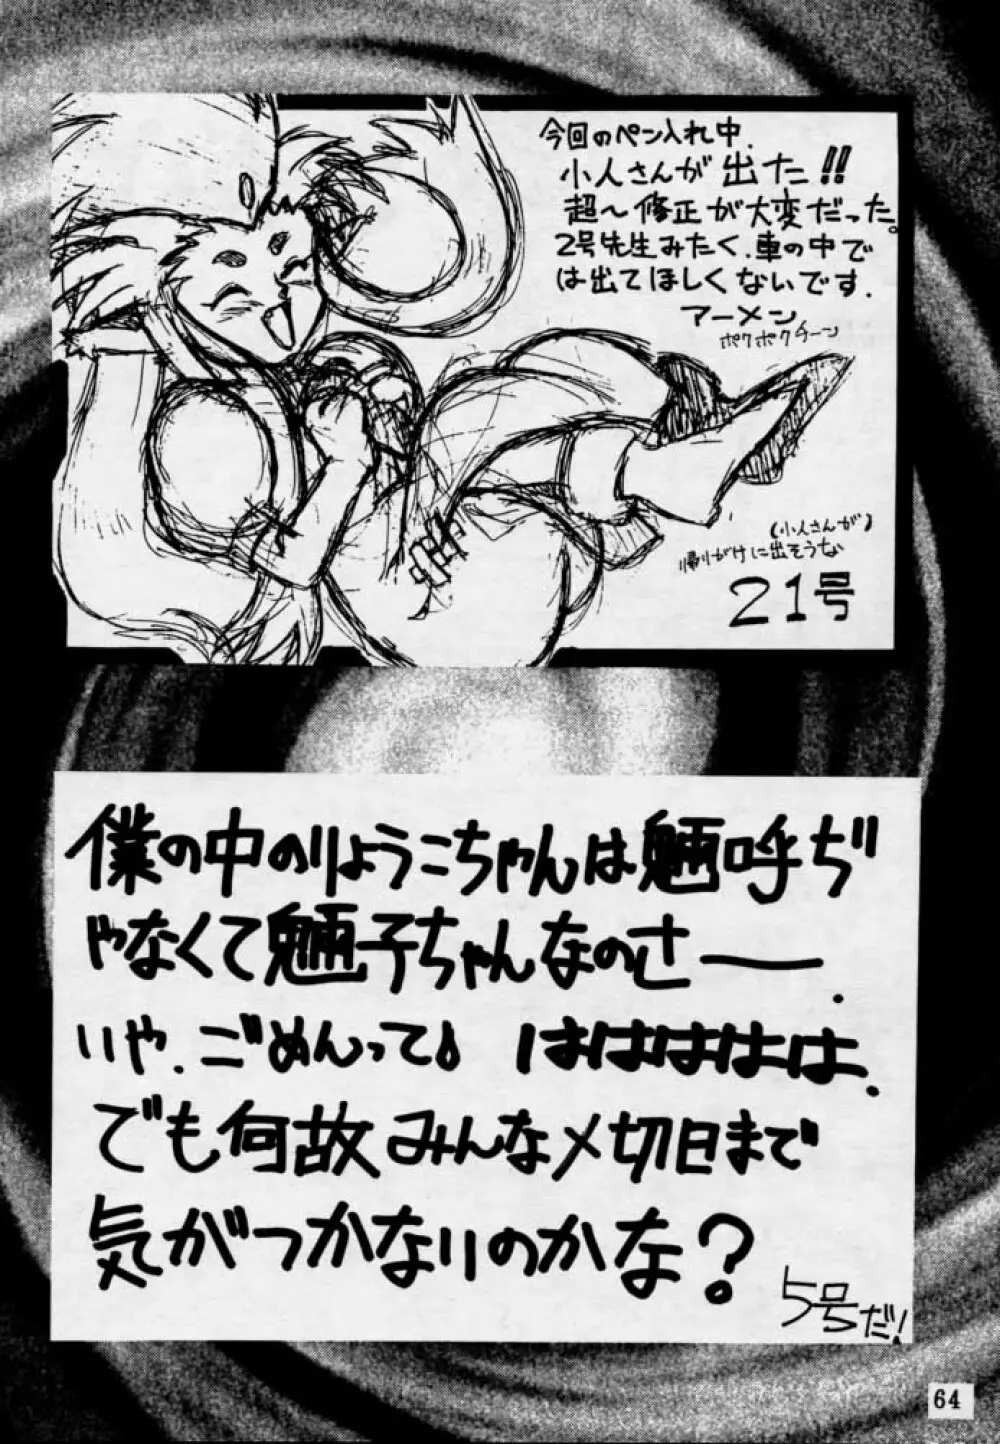 今回のペン入れ中、
小人さんが出た!!
超〜修正が大変だった。
2号先生みたく、車の中で
は出てほしくないです.
アーメン
ポクポクチーン
(小人さんが)
帰りがけに出そうな
21号
僕の中のりょうこちゃんは魎呼ぢ
ゃなくて魎子ちゃんなのさー.
いや.ごめんって♪ はははははは.
でも何故みんな〆切日まで
気がつかないのかな?
5号だ!
64